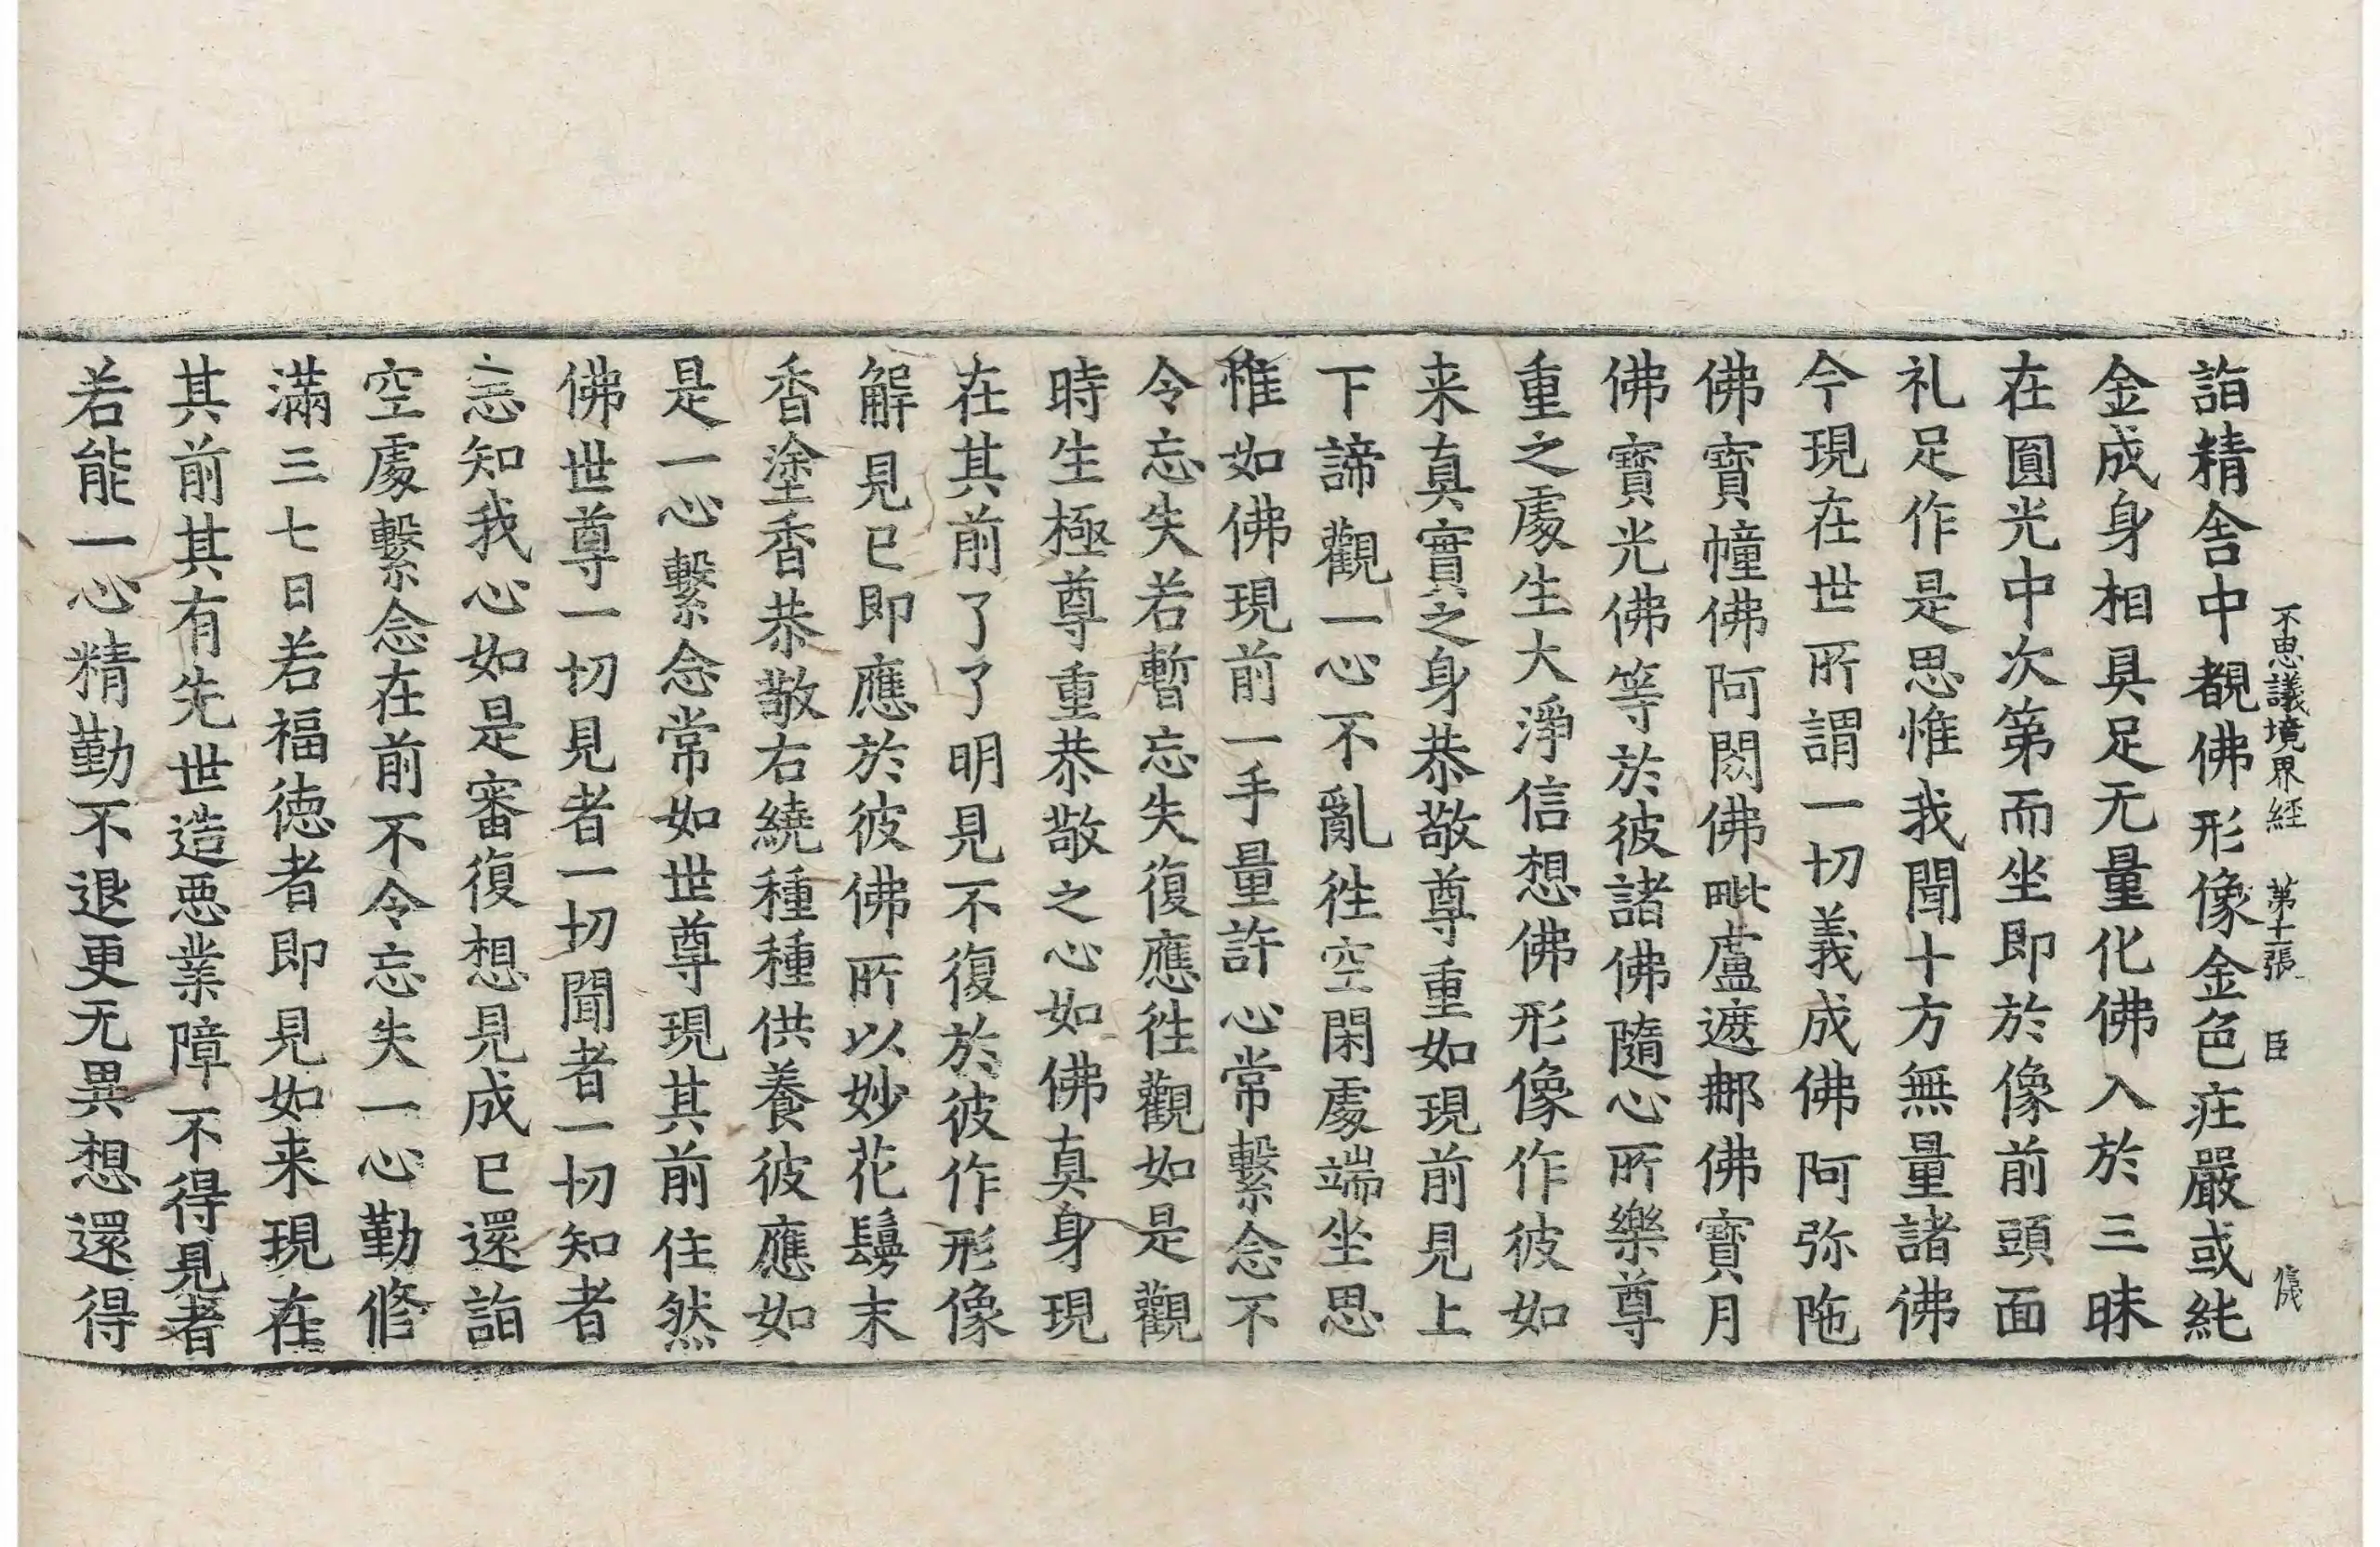 不思議境界經　第十二張　臣
詣精舍中覩佛形像金色疘嚴或純
金成身相具足无量化佛入於三昧
在圓光中次第而坐即於像前頭面
礼足作是思惟我聞十方無量諸佛
今現在世所謂一切義成佛阿弥陁
佛寶幢佛阿閦佛毗盧遮那佛寶月
佛寶光佛等於彼諸佛隨心所樂尊
重之處生大淨信想佛形像作彼如
来真實之身恭敬尊重如現前見上
下諦觀一心不亂徃空閑處端坐思
惟如佛現前一手量許心常繫念不
令忘失若暫忘失復應徃觀如是觀
時生極尊重恭敬之心如佛真身現
在其前了了明見不復於彼作形像
解見已即應於彼佛所以妙花鬘末
香塗香恭敬右繞種種供養彼應如
是一心繫念常如世尊現其前住然
佛世尊一切見者一切聞者一切知者
忘知我心如是審復想見成已還詣
空處繫念在前不令忘失一心勤修
滿三七日若福德者即見如来現在
其前其有先世造惡業障不得見者
若能一心精勤不退更无異想還得